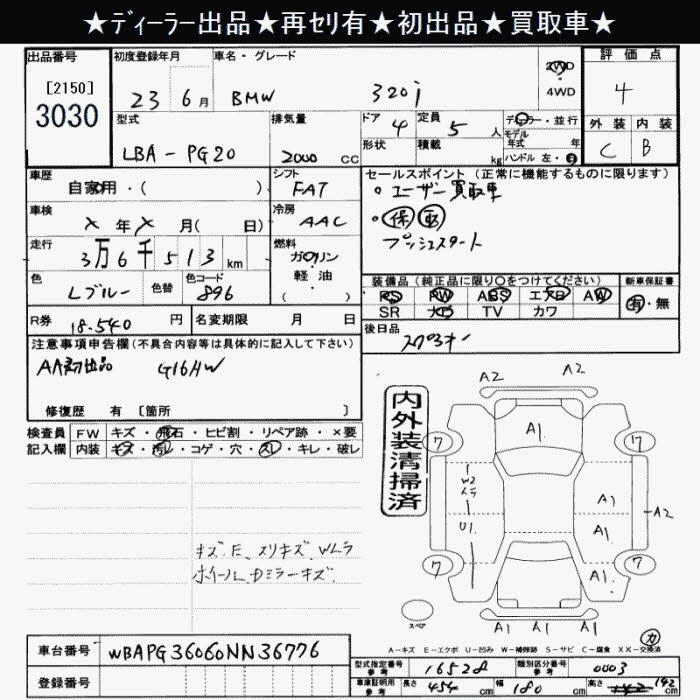 ★ディーラー出品★再セリ有★初出品★買取車★
出品番号 初度登録年月 車名・グレード 評価点
[2150] 2WD
3030 23 6月 BMW 320i 4WD 4
型式 排気量 ドア 定員 ディーラー・並行 外装 内装
4 5人 モデル年式 年
LBA-PG20 2000cc 形状 積載 kg ハンドル 左・右 C B
車歴 シフト セールスポイント(正常に機能するものに限ります)
自家用・( ) FAT ・ユーザー買取車
車検 冷房 ・保 取
X年X月( 日) AAC プッシュスタート
走行 燃料
3万6千513km ガソリン
色 色替 色コード 軽油 装備品(純正品に限り○をつけてください) 新車保証書
Lブルー 896 ( ) PS PW ABS エアB AW 有・無
R券 18-540円 名変期限 月 日 SR ナビ TV カワ
後日品
注意事項申告欄(不具合内容等は具体的に記入して下さい)
AA初出品 G16HW
修復歴 有 [箇所 ]
検査員 FW キズ・飛石・ヒビ割・リペア跡・×要
記入欄 内装 キズ・汚レ・コゲ・穴・スレ・キレ・破レ
内外装清掃済
A2 A2
A1
7 7
W2 ムラ A1
U1 A1 A2
7 A1 7
A1 A1 A1
キズ、E、スリキズ、Wムラ
ホイール、Dミラーキズ
スペア
カ
A-キズ E-エクボ U-凹み W-補修跡 S-サビ C-腐食 XX-交換済
車台番号 WBAPG36060NN36776
型式指定番号 参考 16528 類別区分番号 参考 0003
登録番号 車庫証明用 参考 長さ 454cm 幅 180cm 高さ 142